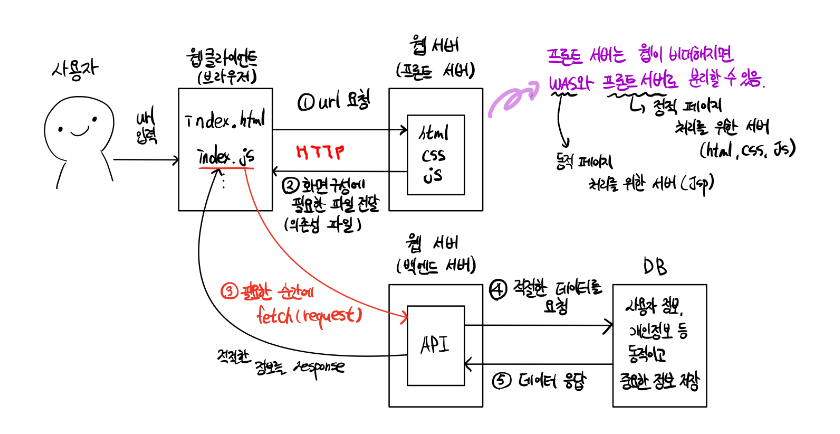 사용자
url
입력
웹 클라이언트
(브라우저)
index.html
index.js
⋮
① url 요청
HTTP
② 화면 구성에
필요한 파일 전달
(의존성 파일)
웹 서버
(프론트 서버)
html
css
js
프론트 서버는 웹이 비대해지면
WAS와 프론트 서버로 분리할 수 있음.
정적 페이지
처리를 위한 서버
(html, css, js)
동적 페이지
처리를 위한 서버 (Jsp)
③ 필요한 순간에
fetch(request)
적절한
정보를 response
웹 서버
(백엔드 서버)
API
④ 적절한 데이터를
요청
⑤ 데이터 응답
DB
사용자 정보,
개인정보 등
동적이고
중요한 정보 저장